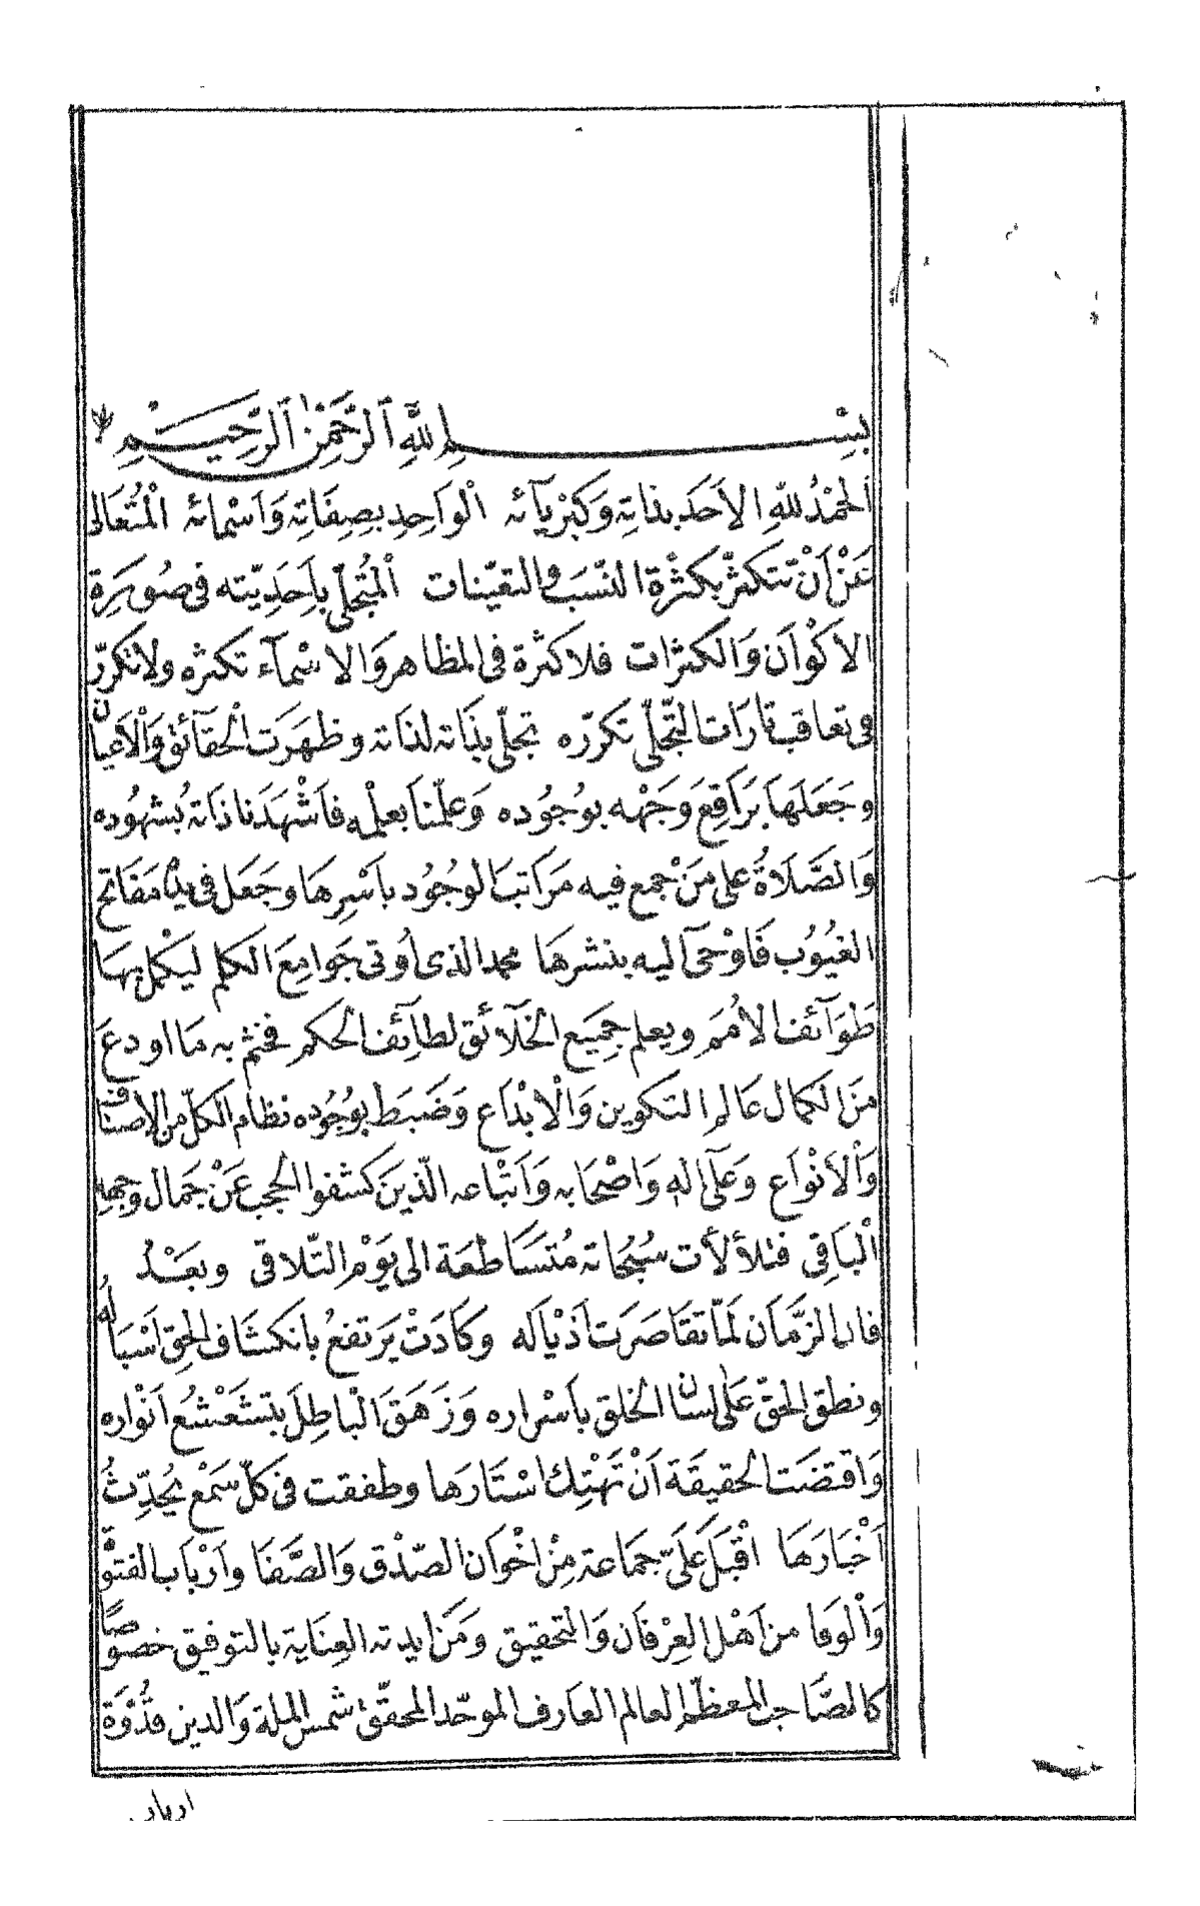 بِسْمِ اللّٰهِ الرَّحْمٰنِ الرَّحِيمِ
اَلْحَمْدُ لِلّٰهِ الاَحَد بذاتِهِ وَكِبْرِيَآئه الْوَاحِدِ بصِفَاتِهِ وَاَسْمائه الْمُتَعَالى
عَنْ اَنْ تَتَكثّر بكَثْرَة النّسَب والتعيّنات الْمُتَجلّى باَحَدِيّته فى صُورَة
الاَكْوَان وَالكثرات فلا كثرة فى المظاهر وَالاسْمآء تكثره ولا تكرّر
فى تعاقب تارَات التّجلّى تكرّره تجلّى بذَاته لذاته وظهَرَت الْحَقآئق وَالْاَعيان
وجَعَلَهَا بَرَاقِعَ وَجْهه بوُجُوده وَعلّمنَا بعِلْمه فاَشْهَدَنا ذَاتهُ بشهُوده
وَالصَّلَاةُ على مَنْ جمع فيه مَرَاتبَ الوجُوُد باَسْرِهَا وجَعَل فى يده مفَاتح
الغيُوُب فَاَوْحَى اليه بنشرهَا محمد الذى اُوتى جَوامِعَ الكلم ليكْمل بهَا
طَوَآئف الاُمَم ويعلم جمِيَع الخَلآئق لطآئف الحكم فختم به مَا اودعَ
مَنَ الكمال عَالمِ التكوين وَالْاِبْدَاع وَضَبَط بوُجُوده نظام الكلّ من الاصْنَاف
وَالْاَنْوَاع وَعلَى الهِ وَاصْحَابه وَاَتْبَاعه الّذينَ كشفوا الحجب عَنْ جَمال وجهه
الْبَاقى فتلأْلأَت سُبُحَاته مُتَسَاطعَة الى يَوْم التّلاقى وبعَــدُ
فان الزّمَان لمّا تقَاصَرَت اَذْيَاله وكَادَتْ يَرتفعُ بانكشَاف الحق اَسْبَالُه
ونطق الحَقّ عَلى لسَان الخلق باَسْراره وَزَهَقَ الْبَاطِلَ بتشَعْشُع اَنْواره
وَاقتضَت الحقيقَة اَنْ تَهْتِك اسْتَارَهَا وطفقت فى كلّ سَمْع يُحَدّثُ
اَخْبَارَهَا اقْبَلَ عَلَىّ جمَاعة مِنْ اخْوَان الصّدْق وَالصَّفَا واَرْبَاب الفتوّة
وَالْوَفا من اَهْل العِرْفَان وَالتحقيق وَمَنَ ايدته العِنَاية بالتوفيق خصُوصًا
كالصَّاحب المعَظّم العالم العَارف الموحّد المحَقّق شمس الملة وَالدين قدُْوَة
ارباب